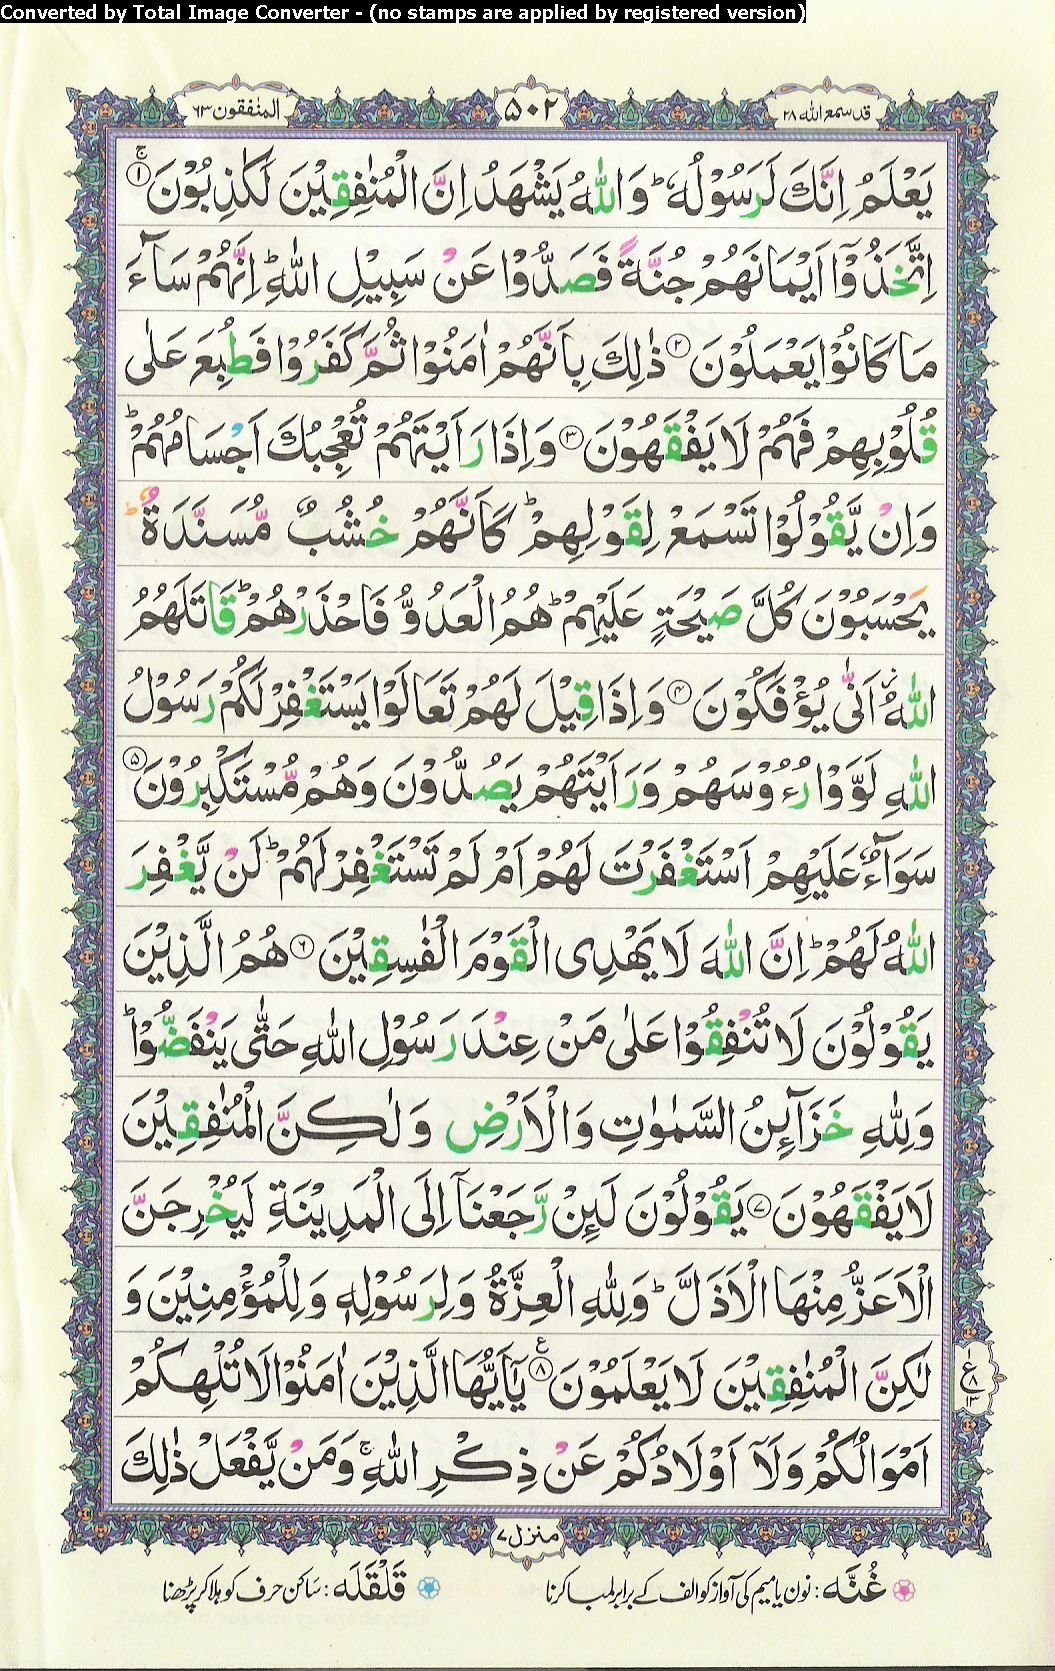 Converted by Total Image Converter - (no stamps are applied by registered version)
المنٰفقون ٦٣ ٥٠٢ قد سمع الله ٢٨
يَعۡلَمُ اِنَّكَ لَرَسُوۡلُهٗ ؕ وَاللّٰهُ يَشۡهَدُ اِنَّ الۡمُنٰفِقِيۡنَ لَكٰذِبُوۡنَ ۚ‏ ﴿۱﴾
اِتَّخَذُوۡۤا اَيۡمَانَهُمۡ جُنَّةً فَصَدُّوۡا عَنۡ سَبِيۡلِ اللّٰهِ‌ؕ اِنَّهُمۡ سَآءَ
مَا كَانُوۡا يَعۡمَلُوۡنَ ﴿۲﴾ ذٰلِكَ بِاَنَّهُمۡ اٰمَنُوۡا ثُمَّ كَفَرُوۡا فَطُبِعَ عَلٰى
قُلُوۡبِهِمۡ فَهُمۡ لَا يَفۡقَهُوۡنَ ﴿۳﴾ وَاِذَا رَاَيۡتَهُمۡ تُعۡجِبُكَ اَجۡسَامُهُمۡ‌ؕ
وَاِنۡ يَّقُوۡلُوۡا تَسۡمَعۡ لِقَوۡلِهِمۡ‌ؕ كَاَنَّهُمۡ خُشُبٌ مُّسَنَّدَةٌ ؕ
يَحۡسَبُوۡنَ كُلَّ صَيۡحَةٍ عَلَيۡهِمۡ‌ؕ هُمُ الۡعَدُوُّ فَاحۡذَرۡهُمۡ‌ؕ قَاتَلَهُمُ
اللّٰهُ‌ؗ اَنّٰى يُؤۡفَكُوۡنَ ﴿۴﴾ وَاِذَا قِيۡلَ لَهُمۡ تَعَالَوۡا يَسۡتَغۡفِرۡ لَكُمۡ رَسُوۡلُ
اللّٰهِ لَوَّوۡا رُءُوۡسَهُمۡ وَرَاَيۡتَهُمۡ يَصُدُّوۡنَ وَهُمۡ مُّسۡتَكۡبِرُوۡنَ ﴿۵﴾
سَوَآءٌ عَلَيۡهِمۡ اَسۡتَغۡفَرۡتَ لَهُمۡ اَمۡ لَمۡ تَسۡتَغۡفِرۡ لَهُمۡؕ لَنۡ يَّغۡفِرَ
اللّٰهُ لَهُمۡ‌ؕ اِنَّ اللّٰهَ لَا يَهۡدِى الۡقَوۡمَ الۡفٰسِقِيۡنَ ﴿۶﴾ هُمُ الَّذِيۡنَ
يَقُوۡلُوۡنَ لَا تُنۡفِقُوۡا عَلٰى مَنۡ عِنۡدَ رَسُوۡلِ اللّٰهِ حَتّٰى يَنۡفَضُّوۡا‌ؕ
وَلِلّٰهِ خَزَآٮِٕنُ السَّمٰوٰتِ وَالۡاَرۡضِ وَلٰكِنَّ الۡمُنٰفِقِيۡنَ
لَا يَفۡقَهُوۡنَ ﴿۷﴾ يَقُوۡلُوۡنَ لَٮِٕنۡ رَّجَعۡنَاۤ اِلَى الۡمَدِيۡنَةِ لَيُخۡرِجَنَّ
الۡاَعَزُّ مِنۡهَا الۡاَذَلَّ‌ ؕ وَلِلّٰهِ الۡعِزَّةُ وَلِرَسُوۡلِهٖ وَلِلۡمُؤۡمِنِيۡنَ وَ
لٰكِنَّ الۡمُنٰفِقِيۡنَ لَا يَعۡلَمُوۡنَ ﴿۸﴾ ع يٰۤاَيُّهَا الَّذِيۡنَ اٰمَنُوۡا لَا تُلۡهِكُمۡ
اَمۡوَالُكُمۡ وَلَاۤ اَوۡلَادُكُمۡ عَنۡ ذِكۡرِ اللّٰهِ‌ۚ وَمَنۡ يَّفۡعَلۡ ذٰلِكَ
منزل ٧
غُنَّه: نون یا میم کی آواز کو الف کے برابر لمبا کرنا قَلْقَلَه: ساکن حرف کو ہلا کر پڑھنا